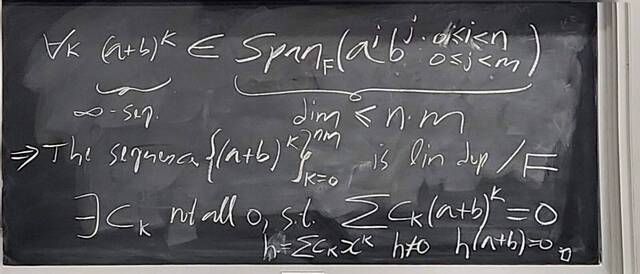 ∀k (a+b)^k ∈ Span_F(a^i b^j : 0≤i<n
0≤j<m)
∞-seq. dim ≤ n·m
⇒ The sequence {(a+b)^k}_{k=0}^{nm} is lin dep /F
∃ c_k not all 0, s.t. Σ c_k(a+b)^k = 0
h = Σ c_k x^k h≠0 h(a+b)=0 □